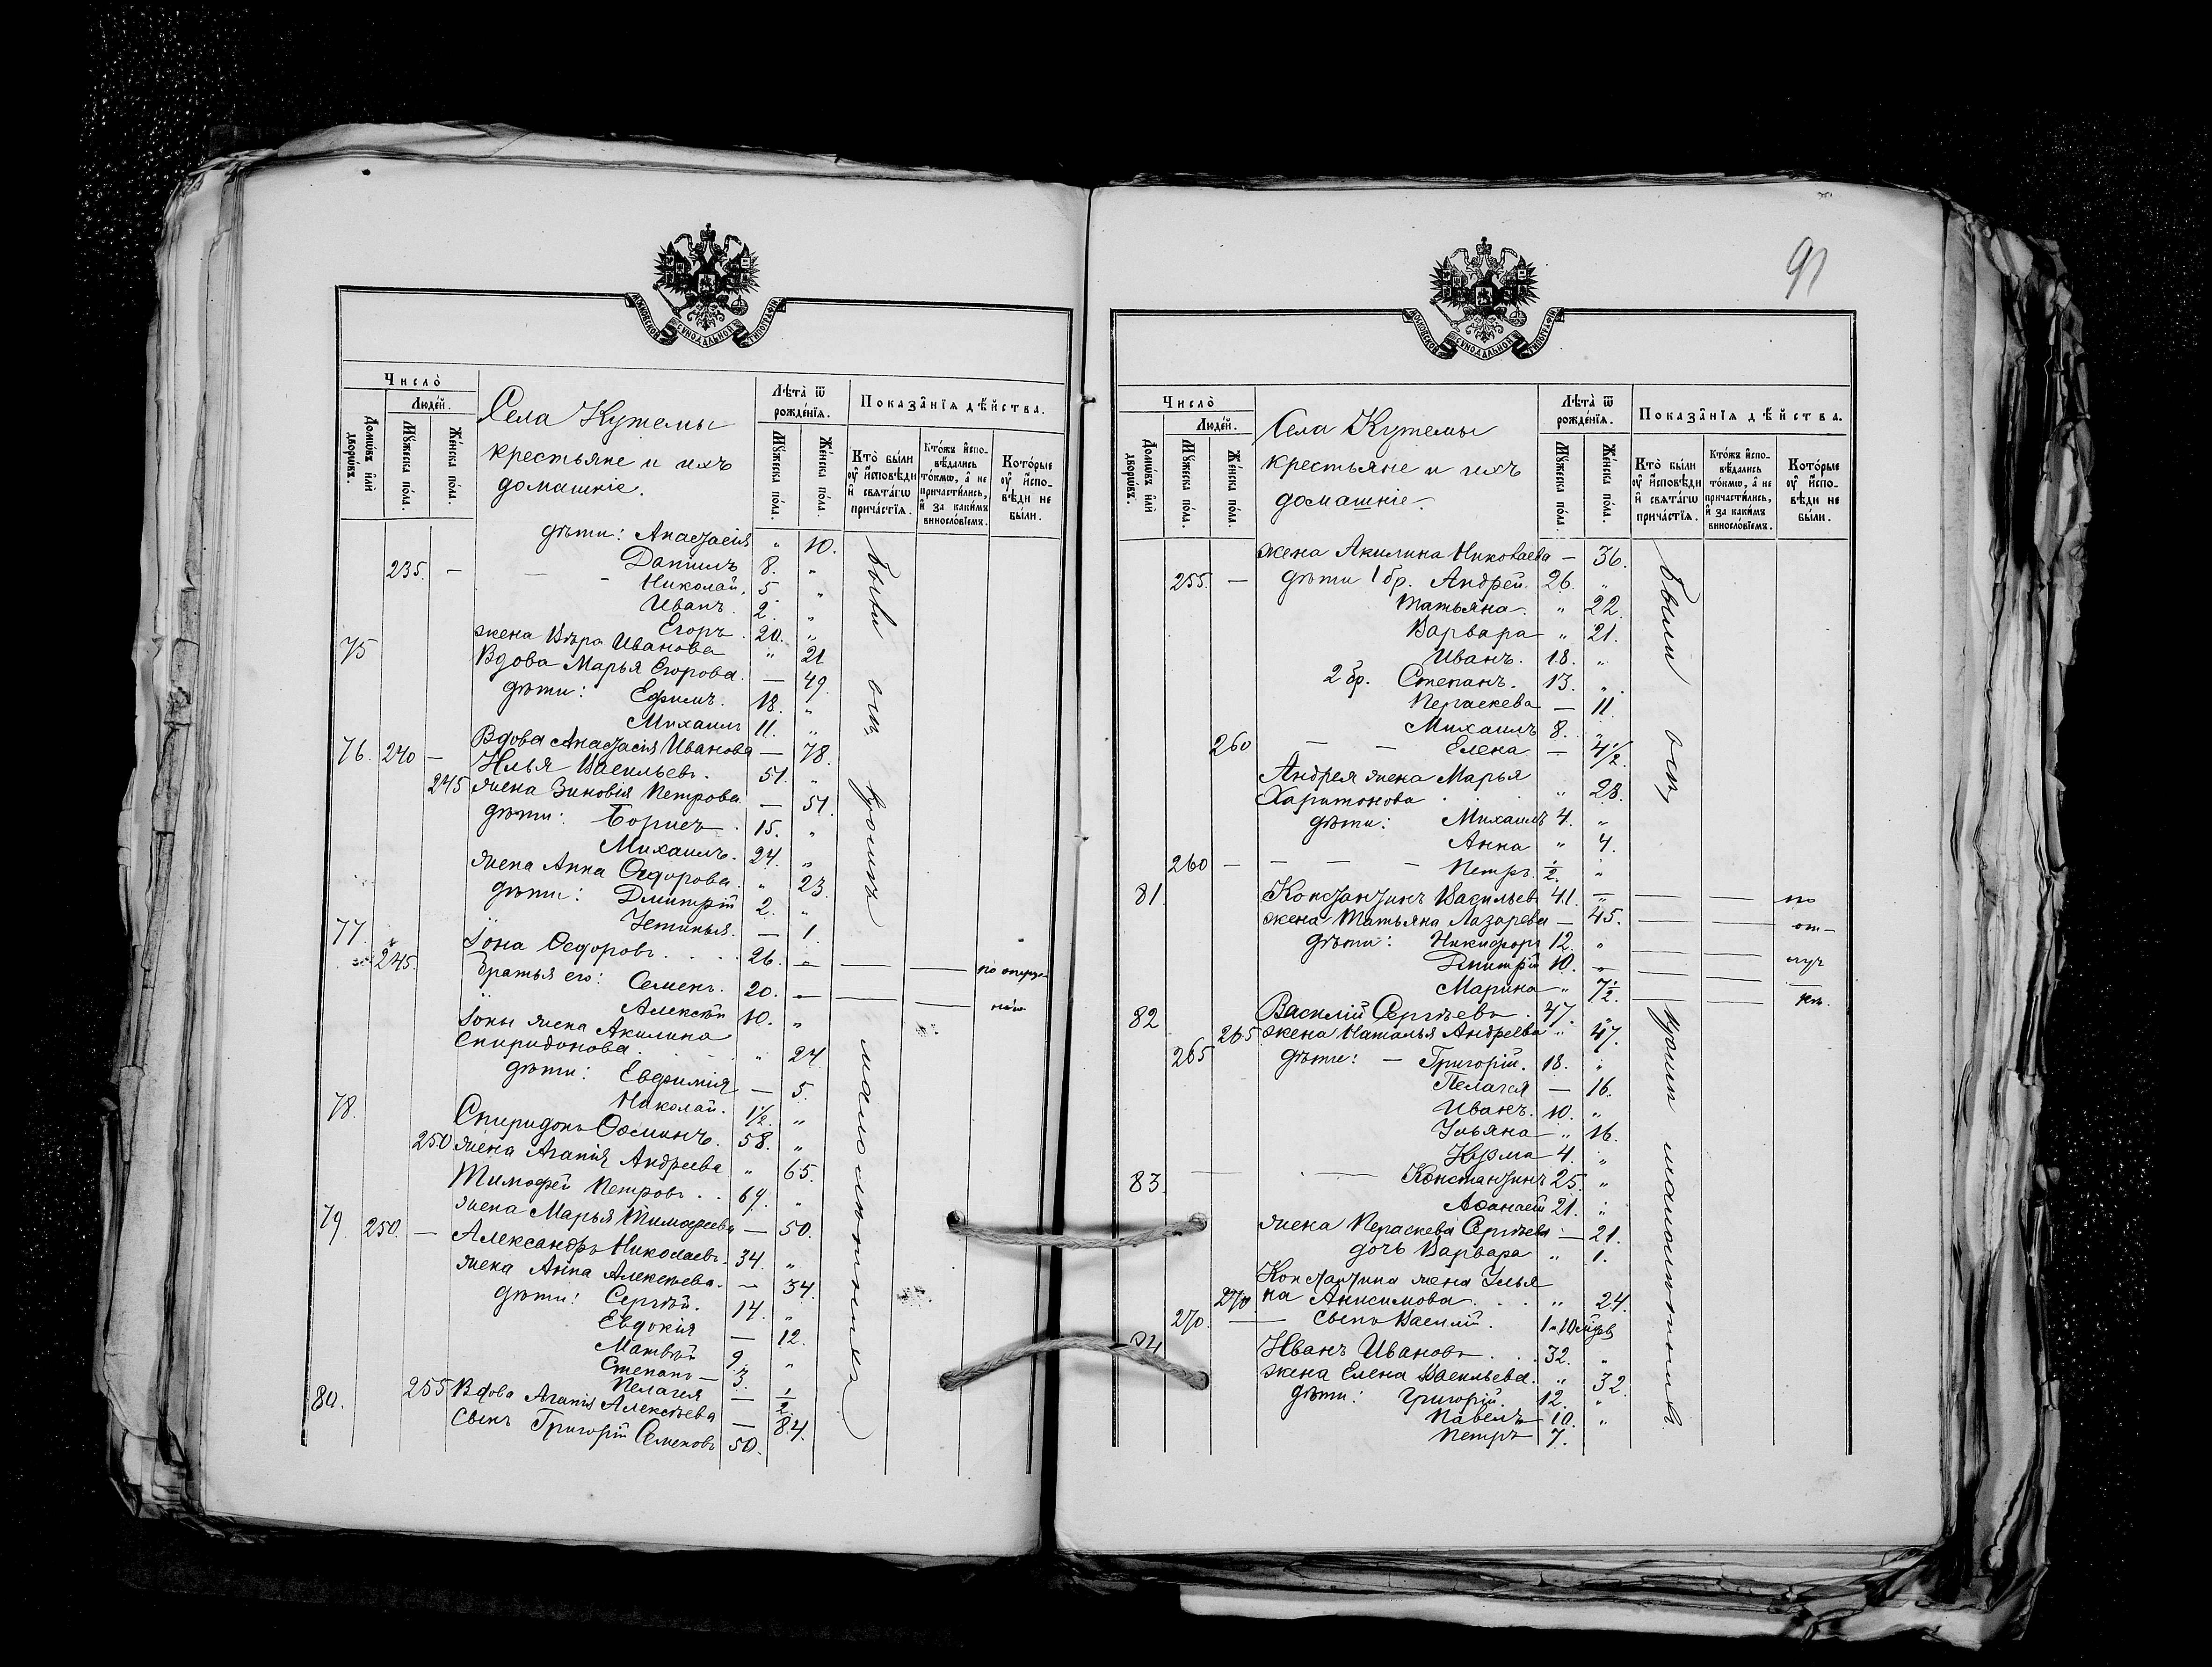 МОСКОВСКОЙ СѴНОДАЛЬНОЙ ТИПОГРАФІИ
Число̀
Людéй.
Домѡ́въ и҆лѝ дворѡ́въ.
Мꙋ́жеска по́ла.
Же́нска по́ла.
Села Кутемы
крестьяне и ихъ
домашніе.
Лѣ́та ѿ рожде́нїѧ.
Мꙋ́жеска по́ла.
Же́нска по́ла.
Показа̑нїѧ дѣ́йства.
Кто̀ бы́ли оу҆ и҆сповѣ́ди и҆ свѧта́гѡ прича́стїѧ.
Кто́жъ и҆спо-вѣ́дались то́кмѡ, а҆ не причасти́лись, и҆ за каки́мъ винослові́емъ.
Кото́рые оу҆ и҆спо-вѣ́ди не бы́ли.
дѣти: Анастасія " 10.
235. — Даніилъ 8. "
Николай, 5 "
Иванъ. 2. "
Егоръ 20. "
75 жена Вѣра Иванова " 21
Вдова Марья Егорова. — 49.
дѣти: Ефимъ. 18. "
Михаилъ 11. "
76. 240 — Вдова Анастасія Иванова — 78.
Илья Васильевъ. 51. "
245 жена Зиновія Петрова — 51.
дѣти: Борисъ 15. "
Михаилъ. 24. "
жена Анна Ѳедорова. " 23.
дѣти: Дмитрій 2. "
Устинья. — 1.
77. Іона Ѳедоровъ. 26. — — —
245. братья его: Семенъ. 20. — — —
Алексѣй 10. "
Іоны жена Акилина
Спиридонова " 24.
дѣти: Евфимія — 5.
Николай. 1½. "
78. Спиридонъ Ѳоминъ. 58. "
250 жена Агапія Андреева " 65.
Тимофей Петровъ.. 69. "
жена Марья Тимофеева — 50.
79. 250. — Александръ Николаевъ. 34. "
жена Анна Алексѣева. — 34.
дѣти: Сергѣй. 14. "
Евдокія — 12.
Матвѣй 9. "
Степанъ — 3.
Пелагея — ½.
80. 255 Вдова Агапія Алексѣева — 84.
сынъ Григорій Семеновъ 50.
Были
всѣ
кромѣ
малолѣтнихъ
91
МОСКОВСКОЙ СѴНОДАЛЬНОЙ ТИПОГРАФІИ
Число̀
Людéй.
Домѡ́въ и҆лѝ дворѡ́въ.
Мꙋ́жеска по́ла.
Же́нска по́ла.
Села Кутемы
крестьяне и ихъ
домашніе.
Лѣ́та ѿ рожде́нїѧ.
Мꙋ́жеска по́ла.
Же́нска по́ла.
Показа̑нїѧ дѣ́йства.
Кто̀ бы́ли оу҆ и҆сповѣ́ди и҆ свѧта́гѡ прича́стїѧ.
Кто́жъ и҆спо-вѣ́дались то́кмѡ, а҆ не причасти́лись, и҆ за каки́мъ винослові́емъ.
Кото́рые оу҆ и҆спо-вѣ́ди не бы́ли.
жена Акилина Николаева — 36.
255. — дѣти 1 бр. Андрей. 26. "
Татьяна. " 22.
Варвара " 21.
Иванъ. 18. "
2 бр. Степанъ. 13. "
Параскева — 11.
Михаилъ 8. "
260 — — Елена — 4½.
Андрея жена Марья
Харитонова " 28.
дѣти: Михаилъ 4. "
Анна " 4.
260 — — — — Петръ. ½. "
81. Константинъ Васильевъ 41. — — — по
жена Татьяна Лазарева — 45. — — от-
дѣти: Никифоръ 12. " — — луч
Дмитрій 10. " — —
Марина " 7½. — — кѣ.
82 Василій Сергѣевъ. 47. "
265 жена Наталья Андреева " 47.
265 дѣти: — Григорій. 18. "
Пелагея — 16.
Иванъ. 10. "
Ульяна " 16.
Кузма 4. "
83. — — Константинъ 25. "
Аѳанасій 21. "
жена Параскева Сергѣева — 21.
дочь Варвара " 1.
Константина жена Улья
270 на Анисимова... " 24.
270. — сынъ Василій. 1 " 10 мѣсяц
84 Иванъ Ивановъ 32. "
жена Елена Васильева. " 32.
дѣти: Григорій. 12. "
Павелъ 10. "
Петръ 7.
Были
всѣ
кромѣ
малолѣтнихъ.